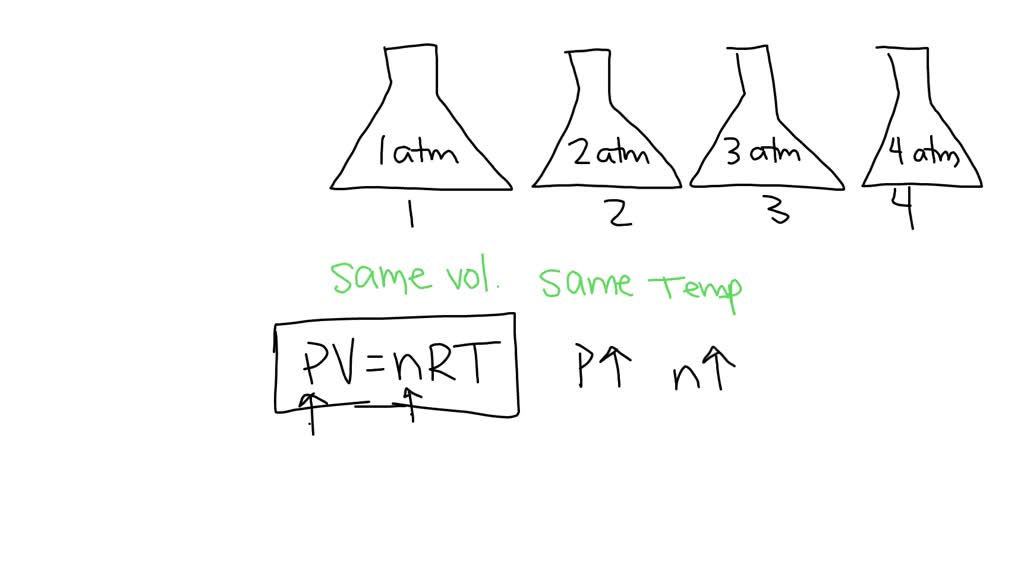 1 atm 2 atm 3 atm 4 atm
1 2 3 4
same vol. same Temp
PV=nRT P↑ n↑
↑ ↑